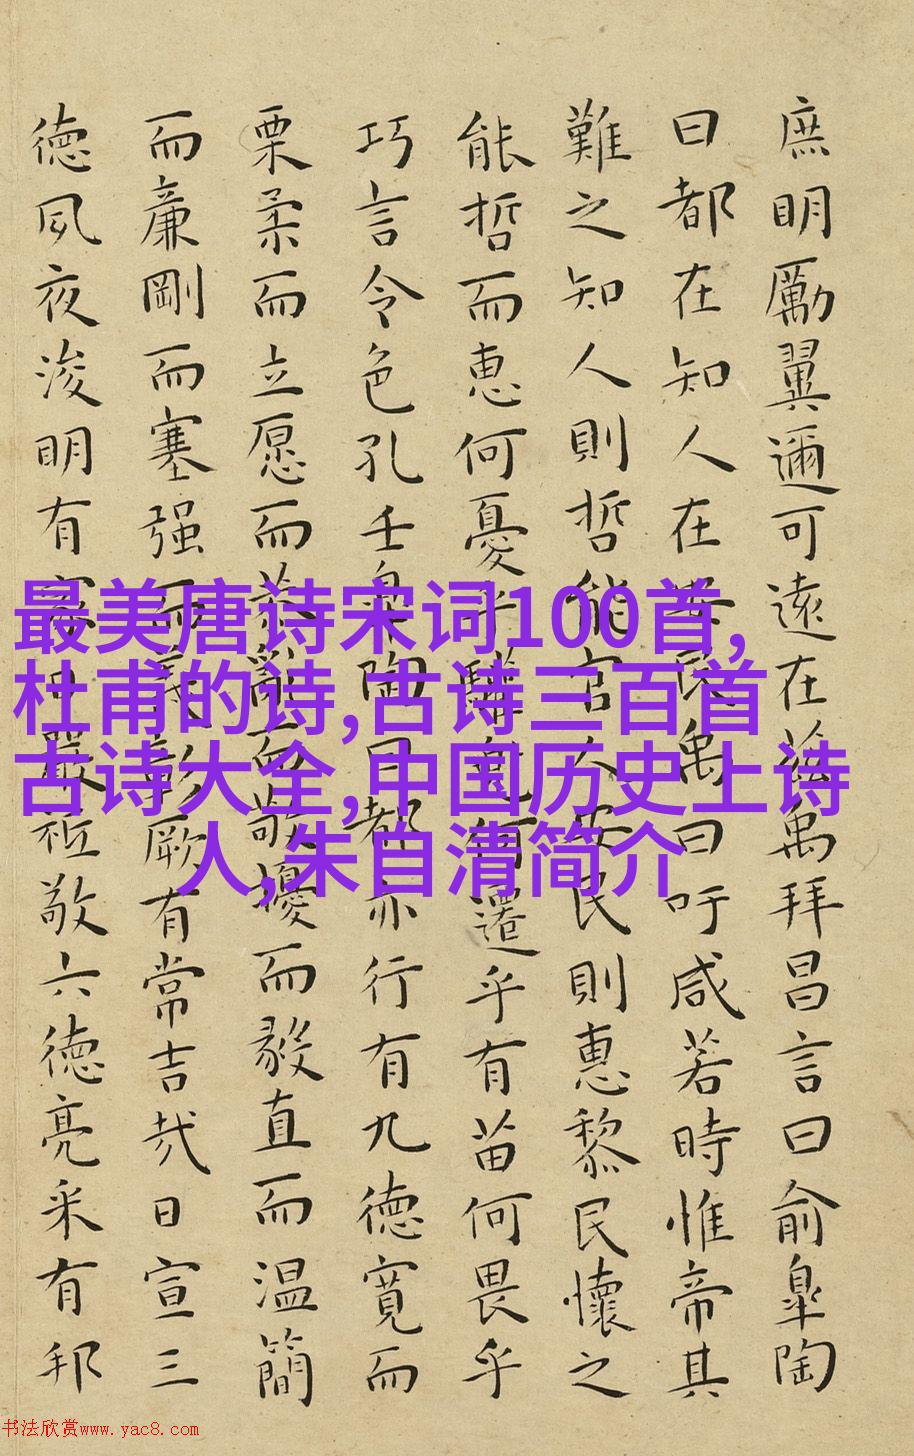 庶明勵翼邇可遠在茲禹拜昌言曰俞皐陶
曰都在知人在安民禹曰吁咸若時惟帝其
難之知人則哲能官人安民則惠黎民懷之
能哲而惠何憂乎驩兜何遷乎有苗何畏乎
巧言令色孔壬皐陶曰都亦行有九德寬而
栗柔而立愿而恭亂而敬擾而毅直而温簡
而廉剛而塞强而義彰厥有常吉哉日宣三
德夙夜浚明有家日嚴祗敬六德亮采有邦
最美唐诗宋词100首,
杜甫的诗,古诗三百首
古诗大全,中国历史上诗
人,朱自清简介
书法欣赏www.yac8.com